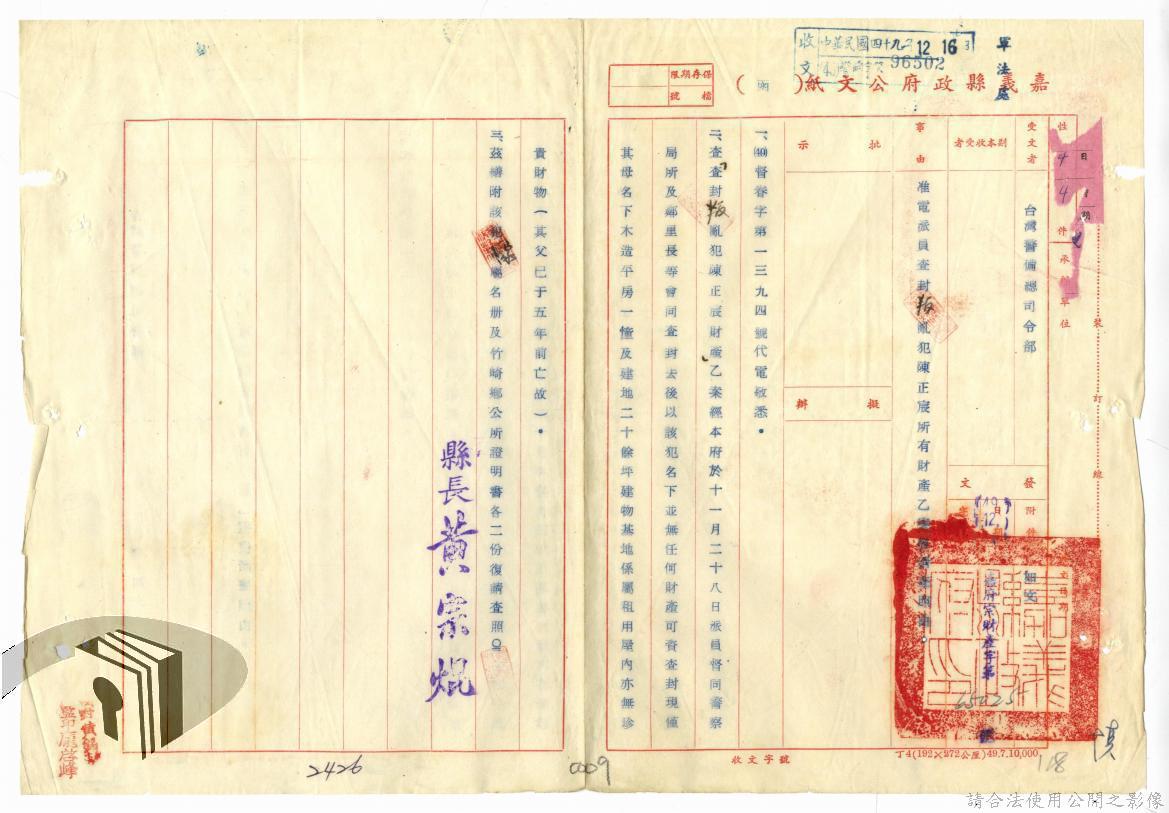 收文 中華民國四十九年12 16
96502
軍法處
嘉義縣政府公文紙(函)
保存期限
檔號
受文者 台灣警備總司令部
副本收受者
批示
擬辦
發文
日期
附件 如文
事由 准電派員查封叛亂犯陳正宸所有財產乙案
一、(49)督眷字第一三九四號代電敬悉。
二、查查封叛亂犯陳正宸財產乙案經本府於十一月二十八日派員督同警察
局所及鄰里長等會同查封去後以該犯名下並無任何財產可資查封現僅
其母名下木造平房一憧及建地二十餘坪建物基地係屬租用屋內亦無珍
貴財物(其父已于五年前亡故)。
三、茲檢附該犯財產名册及竹崎鄉公所證明書各二份復請查照。
縣長黃宗焜
嘉義縣政府印
府宗財產字第
號
裝訂線
收文字號
丁4(192×272公厘)49.7.10,000
118
2426
0009
監印龐啓峰
請合法使用公開之影像